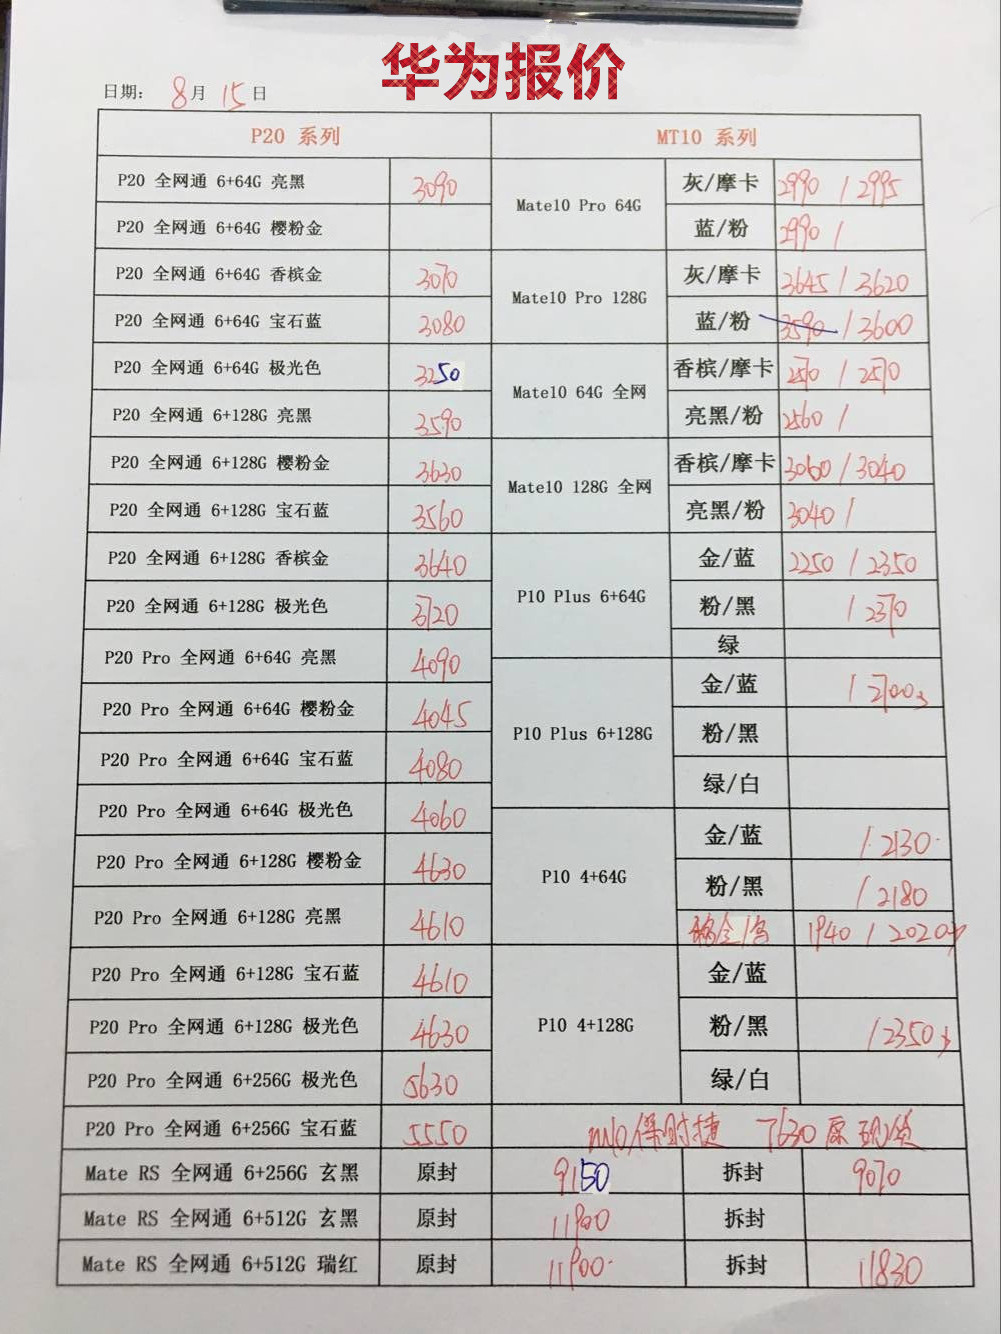 华为报价
日期: 8月 15日
P20 系列 MT10 系列
P20 全网通 6+64G 亮黑 3090 Mate10 Pro 64G 灰/摩卡 2990 / 2995
P20 全网通 6+64G 樱粉金 蓝/粉 2990 /
P20 全网通 6+64G 香槟金 3070 Mate10 Pro 128G 灰/摩卡 3645 / 3620
P20 全网通 6+64G 宝石蓝 3080 蓝/粉 3590 / 3600
P20 全网通 6+64G 极光色 3250 Mate10 64G 全网 香槟/摩卡 2570 / 2570
P20 全网通 6+128G 亮黑 3590 亮黑/粉 2560 /
P20 全网通 6+128G 樱粉金 3630 Mate10 128G 全网 香槟/摩卡 3060 / 3040
P20 全网通 6+128G 宝石蓝 3560 亮黑/粉 3040 /
P20 全网通 6+128G 香槟金 3640 P10 Plus 6+64G 金/蓝 2250 / 2350
P20 全网通 6+128G 极光色 3720 粉/黑 / 2370
绿
P20 Pro 全网通 6+64G 亮黑 4090 P10 Plus 6+128G 金/蓝 / 2700
P20 Pro 全网通 6+64G 樱粉金 4045 粉/黑
P20 Pro 全网通 6+64G 宝石蓝 4080 绿/白
P20 Pro 全网通 6+64G 极光色 4060 P10 4+64G 金/蓝 / 2130
P20 Pro 全网通 6+128G 樱粉金 4630 粉/黑 / 2180
P20 Pro 全网通 6+128G 亮黑 4610 1940 / 2020
P20 Pro 全网通 6+128G 宝石蓝 4610 P10 4+128G 金/蓝
P20 Pro 全网通 6+128G 极光色 4630 粉/黑 / 2350
P20 Pro 全网通 6+256G 极光色 5630 绿/白
P20 Pro 全网通 6+256G 宝石蓝 5550 保时捷 7630 原
Mate RS 全网通 6+256G 玄黑 原封 9150 拆封 9070
Mate RS 全网通 6+512G 玄黑 原封 11900 拆封
Mate RS 全网通 6+512G 瑞红 原封 11900 拆封 11830